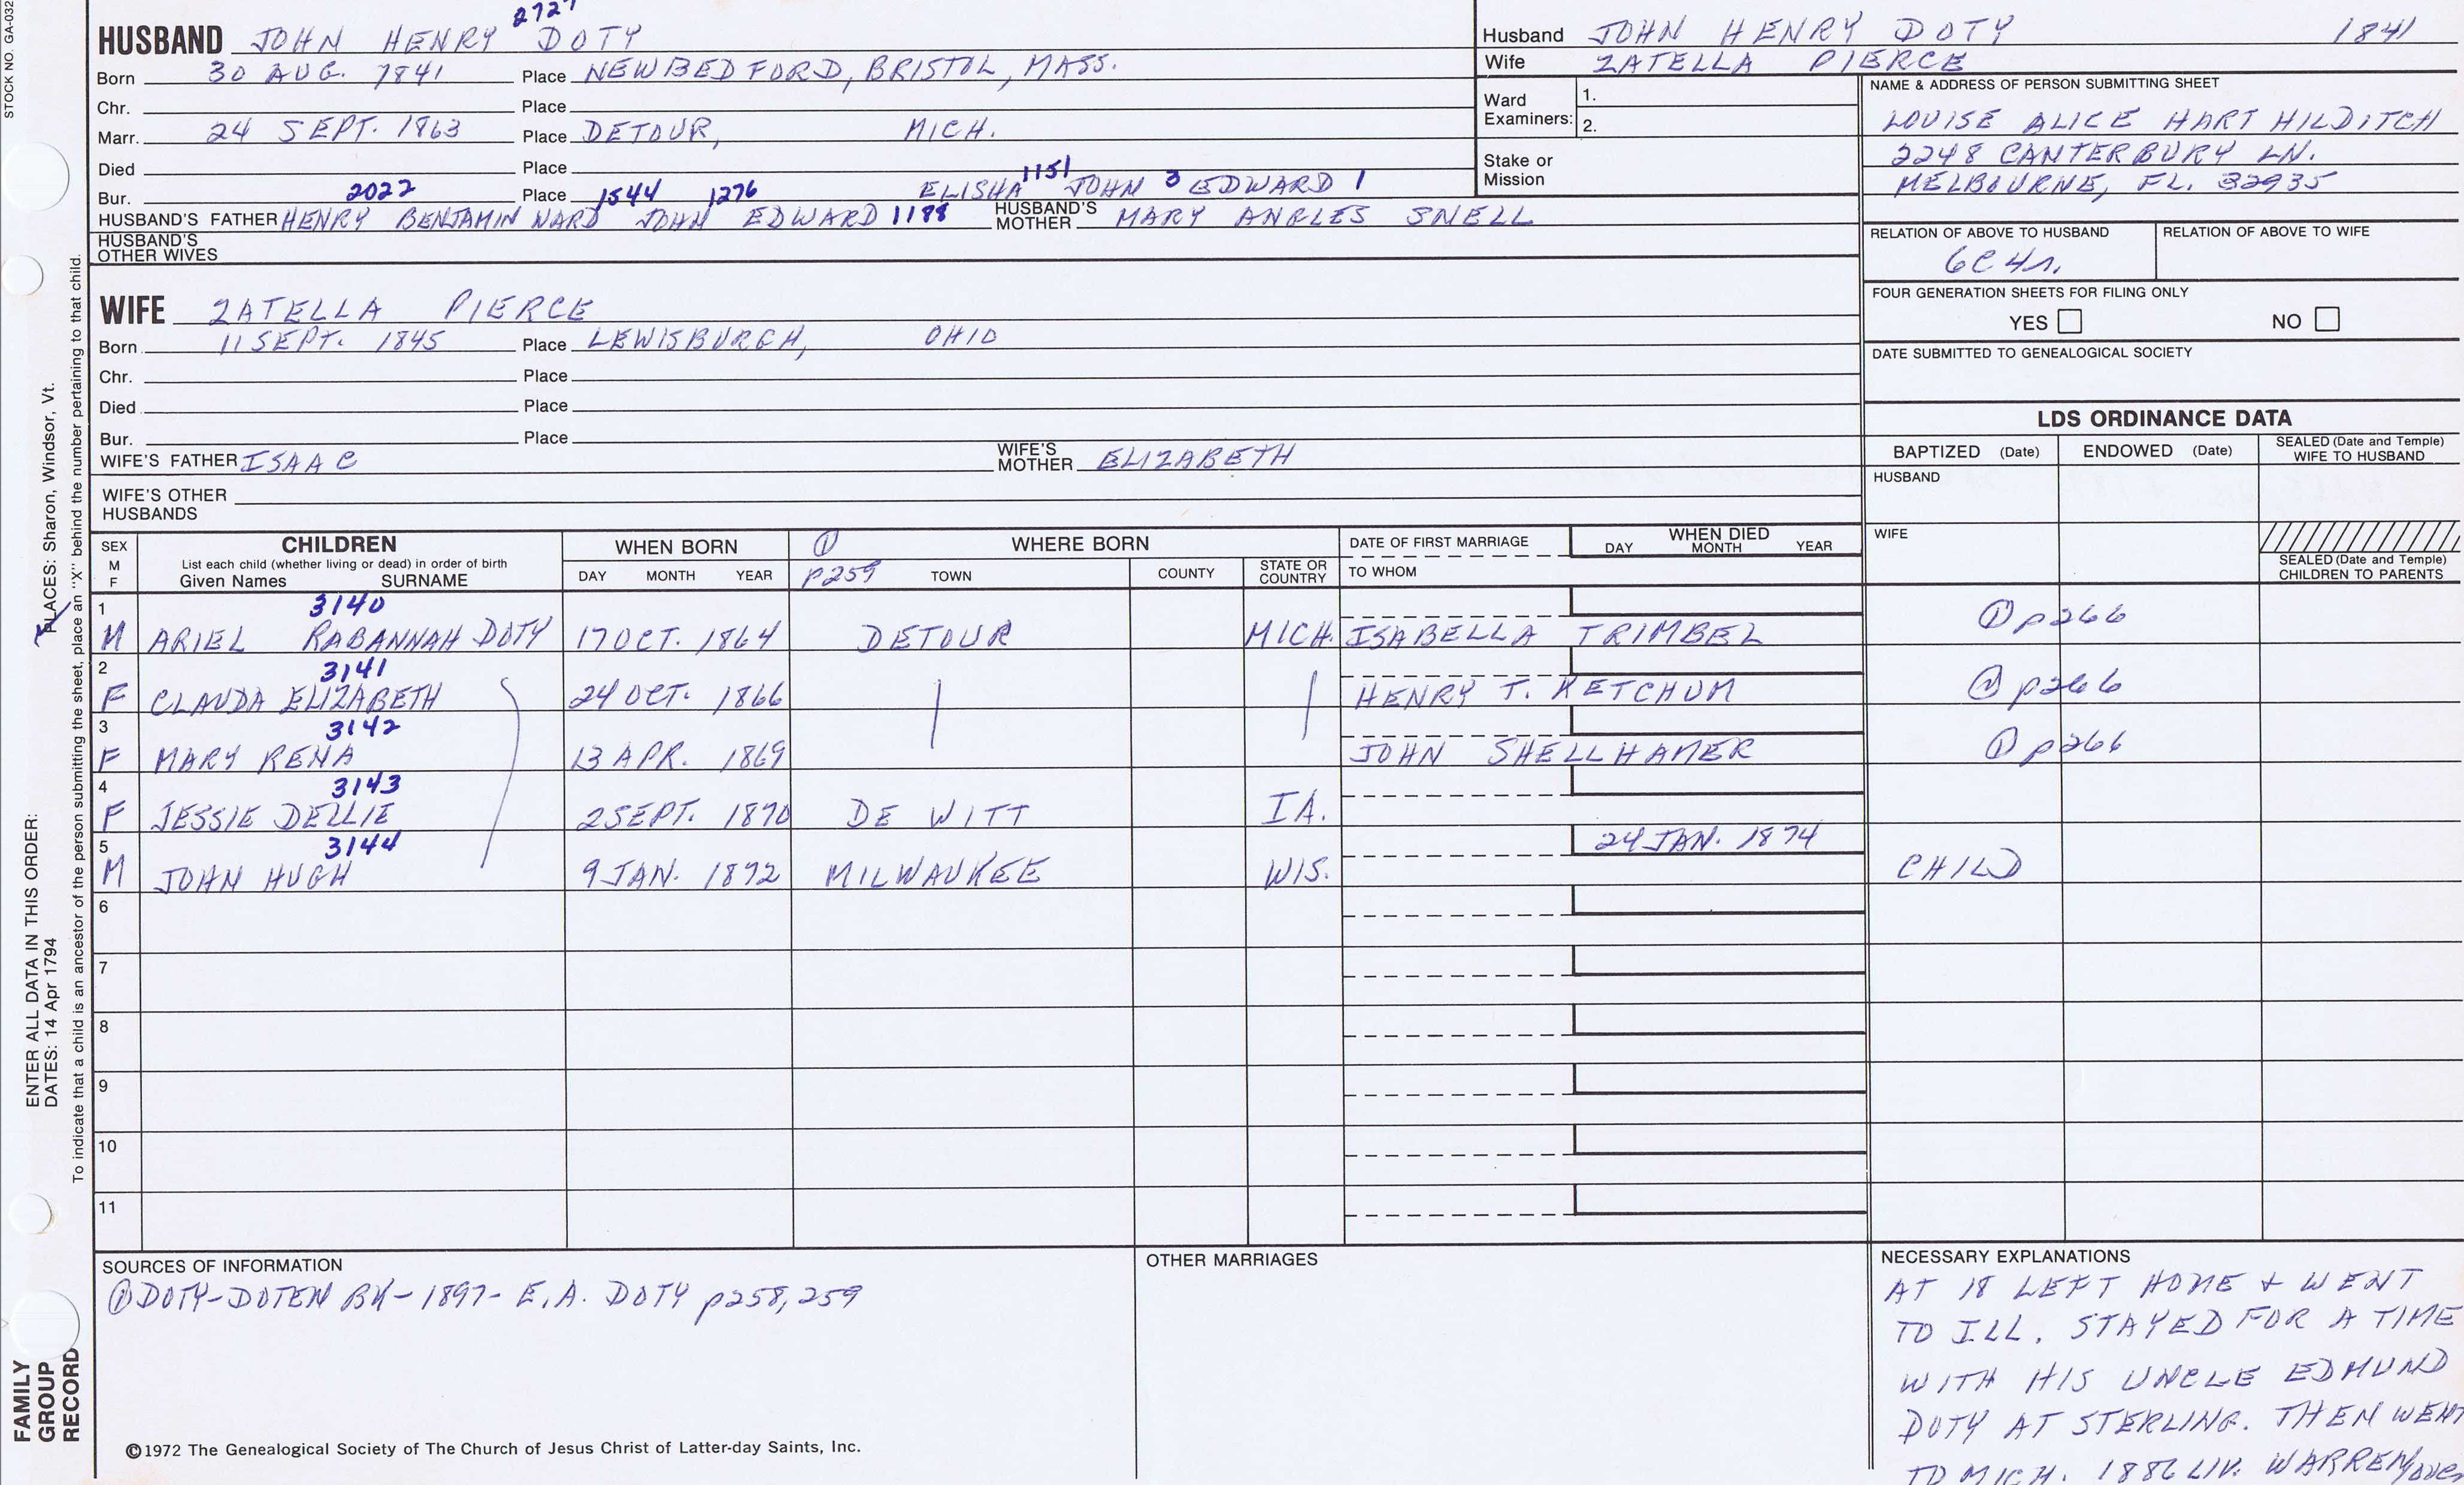 STOCK NO. GA-032
2727
HUSBAND JOHN HENRY DOTY
Born 30 AUG. 1841 Place NEWBEDFORD, BRISTOL, MASS.
Chr. Place
Marr. 24 SEPT. 1863 Place DETOUR, MICH.
Died Place
Bur. Place
2022 1544 1276 ELISHA 1151 JOHN 3 EDWARD 1
HUSBAND'S FATHER HENRY BENJAMIN WARD JOHN EDWARD 1188 HUSBAND'S MOTHER MARY SNELL
HUSBAND'S OTHER WIVES
Husband JOHN HENRY DOTY 1841
Wife ZATELLA PIERCE
Ward Examiners: 1.
2.
Stake or Mission
NAME & ADDRESS OF PERSON SUBMITTING SHEET
LOUISE ALICE HART HILDITCH
2248 CANTERBURY LN.
MELBOURNE, FL. 32935
RELATION OF ABOVE TO HUSBAND RELATION OF ABOVE TO WIFE
6C4r.
FOUR GENERATION SHEETS FOR FILING ONLY
YES NO
DATE SUBMITTED TO GENEALOGICAL SOCIETY
WIFE ZATELLA PIERCE
Born 11 SEPT. 1845 Place LEWISBURGH, OHIO
Chr. Place
Died Place
Bur. Place
WIFE'S FATHER ISAAC WIFE'S MOTHER ELIZABETH
WIFE'S OTHER HUSBANDS
LDS ORDINANCE DATA
BAPTIZED (Date) ENDOWED (Date) SEALED (Date and Temple) WIFE TO HUSBAND
HUSBAND
WIFE
SEALED (Date and Temple) CHILDREN TO PARENTS
SEX M F
CHILDREN
List each child (whether living or dead) in order of birth
Given Names SURNAME
WHEN BORN
DAY MONTH YEAR
① p259
WHERE BORN
TOWN COUNTY STATE OR COUNTRY
DATE OF FIRST MARRIAGE
TO WHOM
WHEN DIED
DAY MONTH YEAR
1 3140
M ARIEL RABANNAH DOTY 17 OCT. 1864 DETOUR MICH. ISABELLA TRIMBEL ① p266
2 3141
F CLAUDA ELIZABETH 24 OCT. 1866 HENRY T. KETCHUM ① p266
3 3142
F MARY RENA 13 APR. 1869 JOHN SHELLHAMER ① p266
4 3143
F JESSIE DELLIE 2 SEPT. 1870 DE WITT IA.
5 3144 24 JAN. 1874
M JOHN HUGH 9 JAN. 1872 MILWAUKEE WIS. CHILD
6
7
8
9
10
11
SOURCES OF INFORMATION
① DOTY-DOTEN BK-1897- E.A. DOTY p258, 259
OTHER MARRIAGES
NECESSARY EXPLANATIONS
AT 18 LEFT HOME + WENT
TO ILL. STAYED FOR A TIME
WITH HIS UNCLE EDMUND
DOTY AT STERLING. THEN WENT
TO MICH. 1886 LIV. WARREN/over
©1972 The Genealogical Society of The Church of Jesus Christ of Latter-day Saints, Inc.
FAMILY GROUP RECORD
ENTER ALL DATA IN THIS ORDER:
DATES: 14 Apr 1794
PLACES: Sharon, Windsor, Vt.
To indicate that a child is an ancestor of the person submitting the sheet, place an "X" behind the number pertaining to that child.